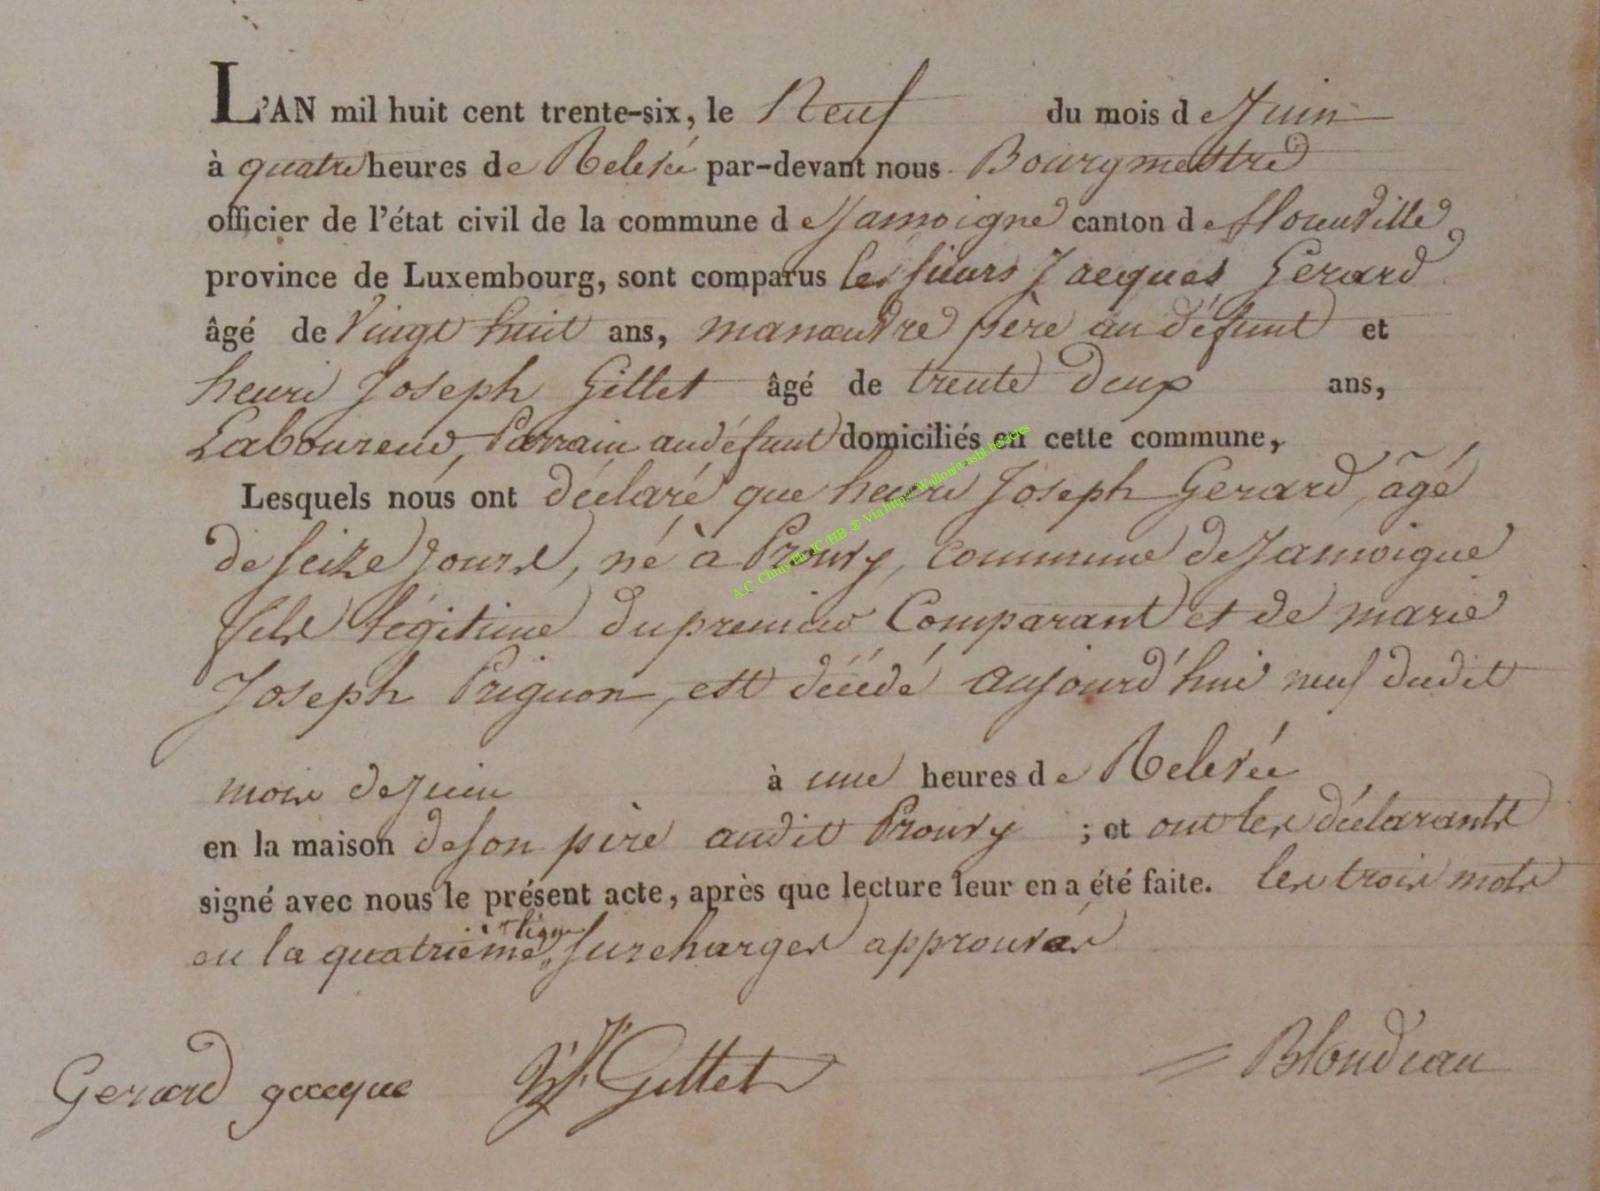 L'AN mil huit cent trente-six, le Neuf du mois de Juin
à quatre heures de Relevée par-devant nous Bourgmestre
officier de l'état civil de la commune de Jamoigne canton de florenville
province de Luxembourg, sont comparus les sieurs Jacques Gerard
âgé de Vingt huit ans, manœuvre père au défunt et
henri Joseph Gillet âgé de trente deux ans,
Laboureur, Parrain au défunt domiciliés en cette commune,
Lesquels nous ont déclaré que henri Joseph Gerard, âgé
de seize jours, né à Prouvy, commune de Jamoigne
fils légitime du premier Comparant et de marie
Joseph Prignon, est décédé aujourd'hui neuf dudit
mois de juin à une heures de Relevée
en la maison de son père audit Prouvy ; et ont les déclarants
signé avec nous le présent acte, après que lecture leur en a été faite. les trois mots
en la quatrième ligne surchargés approuvés
Gerard jacque HJ Gillet Blondiau
A.C. Chiny Ph. JC/HB © Via http://Wallonia-asbl.be/actes